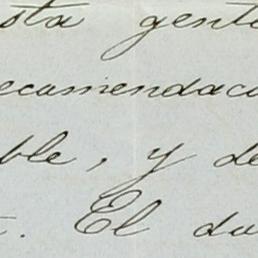 sta gente
ecomendaci
ble, y de
. El du